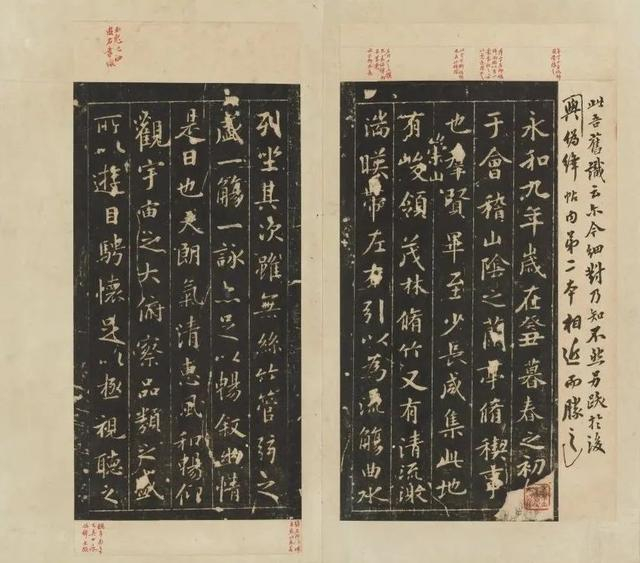 此吾舊識云尔今細對乃知不然另跋於後
與偽絳帖内第二本相近而勝之
永和九年歲在癸丑暮春之初
于會稽山陰之蘭亭脩稧事
也羣賢畢至少長咸集此地
崇山
有峻領茂林脩竹又有清流激
湍暎帶左右引以為流觴曲水
列坐其次雖無絲竹管弦之
盛一觴一詠亦足以暢叙幽情
是日也天朗氣清惠風和暢仰
觀宇宙之大俯察品類之盛
所以遊目騁懷足以極視聽之